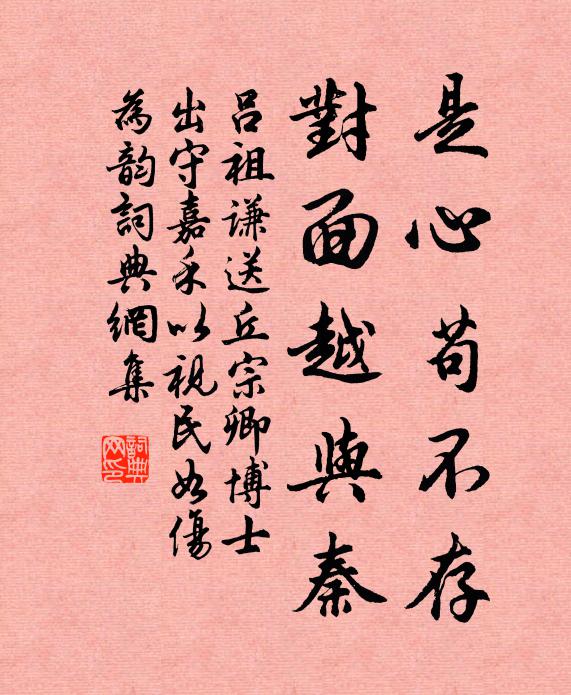 是心苟不存
對面越與秦
呂祖謙送丘宗卿博士
出守嘉禾以視民如傷
為韵詞典網集
詞典网印